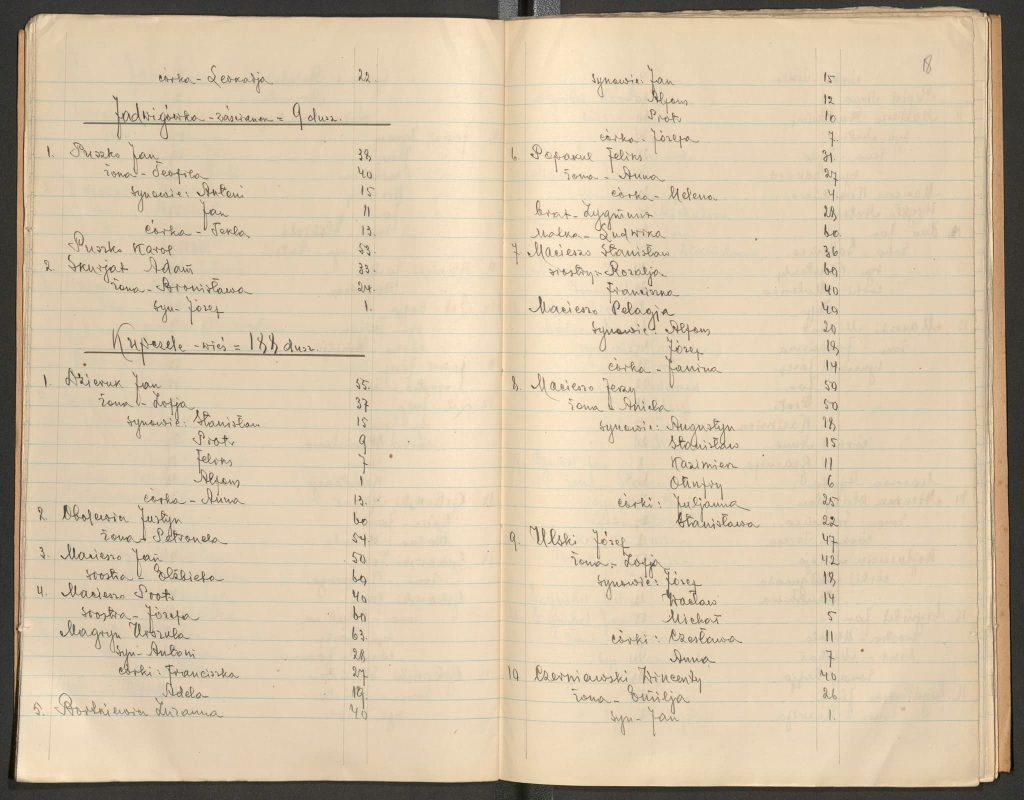 córka - Leokadja 22
Jadwigówka - zaścianek = 9 dusz.
1. Puszko Jan 38
żona - Teofila 40
synowie: Antoni 15
Jan 11
córka - Tekla 13.
Puszko Karol 53.
2. Skurjat Adam 33.
żona - Bronisława 24.
syn - Józef 1.
Kupczele - wieś = 188 dusz.
1. Dzieruk Jan 55.
żona - Zofja 37
synowie: Stanisław 15
Prot. 9
Feliks 7
Alfons 1
córka - Anna 13.
2. Justyn 60
żona - Petronela 54.
3. Macieszo Jan 50
siostra - Elżbieta 60
4. Macieszo Prot. 40
siostra - Józefa 60
Magryn Urszula 63.
syn - Antoni 28
córki: Franciszka 27
Adela 19.
5. Bortkiewicz Zuzanna 40
18
synowie: Jan 15
Alfons 12
Prot. 10
córka - Józefa 7
6. Feliks 31.
żona - Anna 27
córka - Helena 4
brat - Zygmunt 28
matka - Ludwika 60.
7. Macieszo Stanisław 36
siostry - Rozalja 60
Franciszka 40
Macieszo Pelagja 40
synowie - Alfons 20
Józef 18
córka - Janina 14
8. Macieszo Jerzy 50
żona - Aniela 50
synowie: Augustyn 18
Stanisław 15
Kazimierz 11
Onufry 6
córki: Juljanna 25
Stanisława 22
9. Ulski Józef 47
żona - Zofja 42
synowie: Józef 18
Wacław 14
Michał 5
córki: Czesława 11
Anna 7
10. Czerniawski Wincenty 40
żona - Emilja 26
syn - Jan 1.